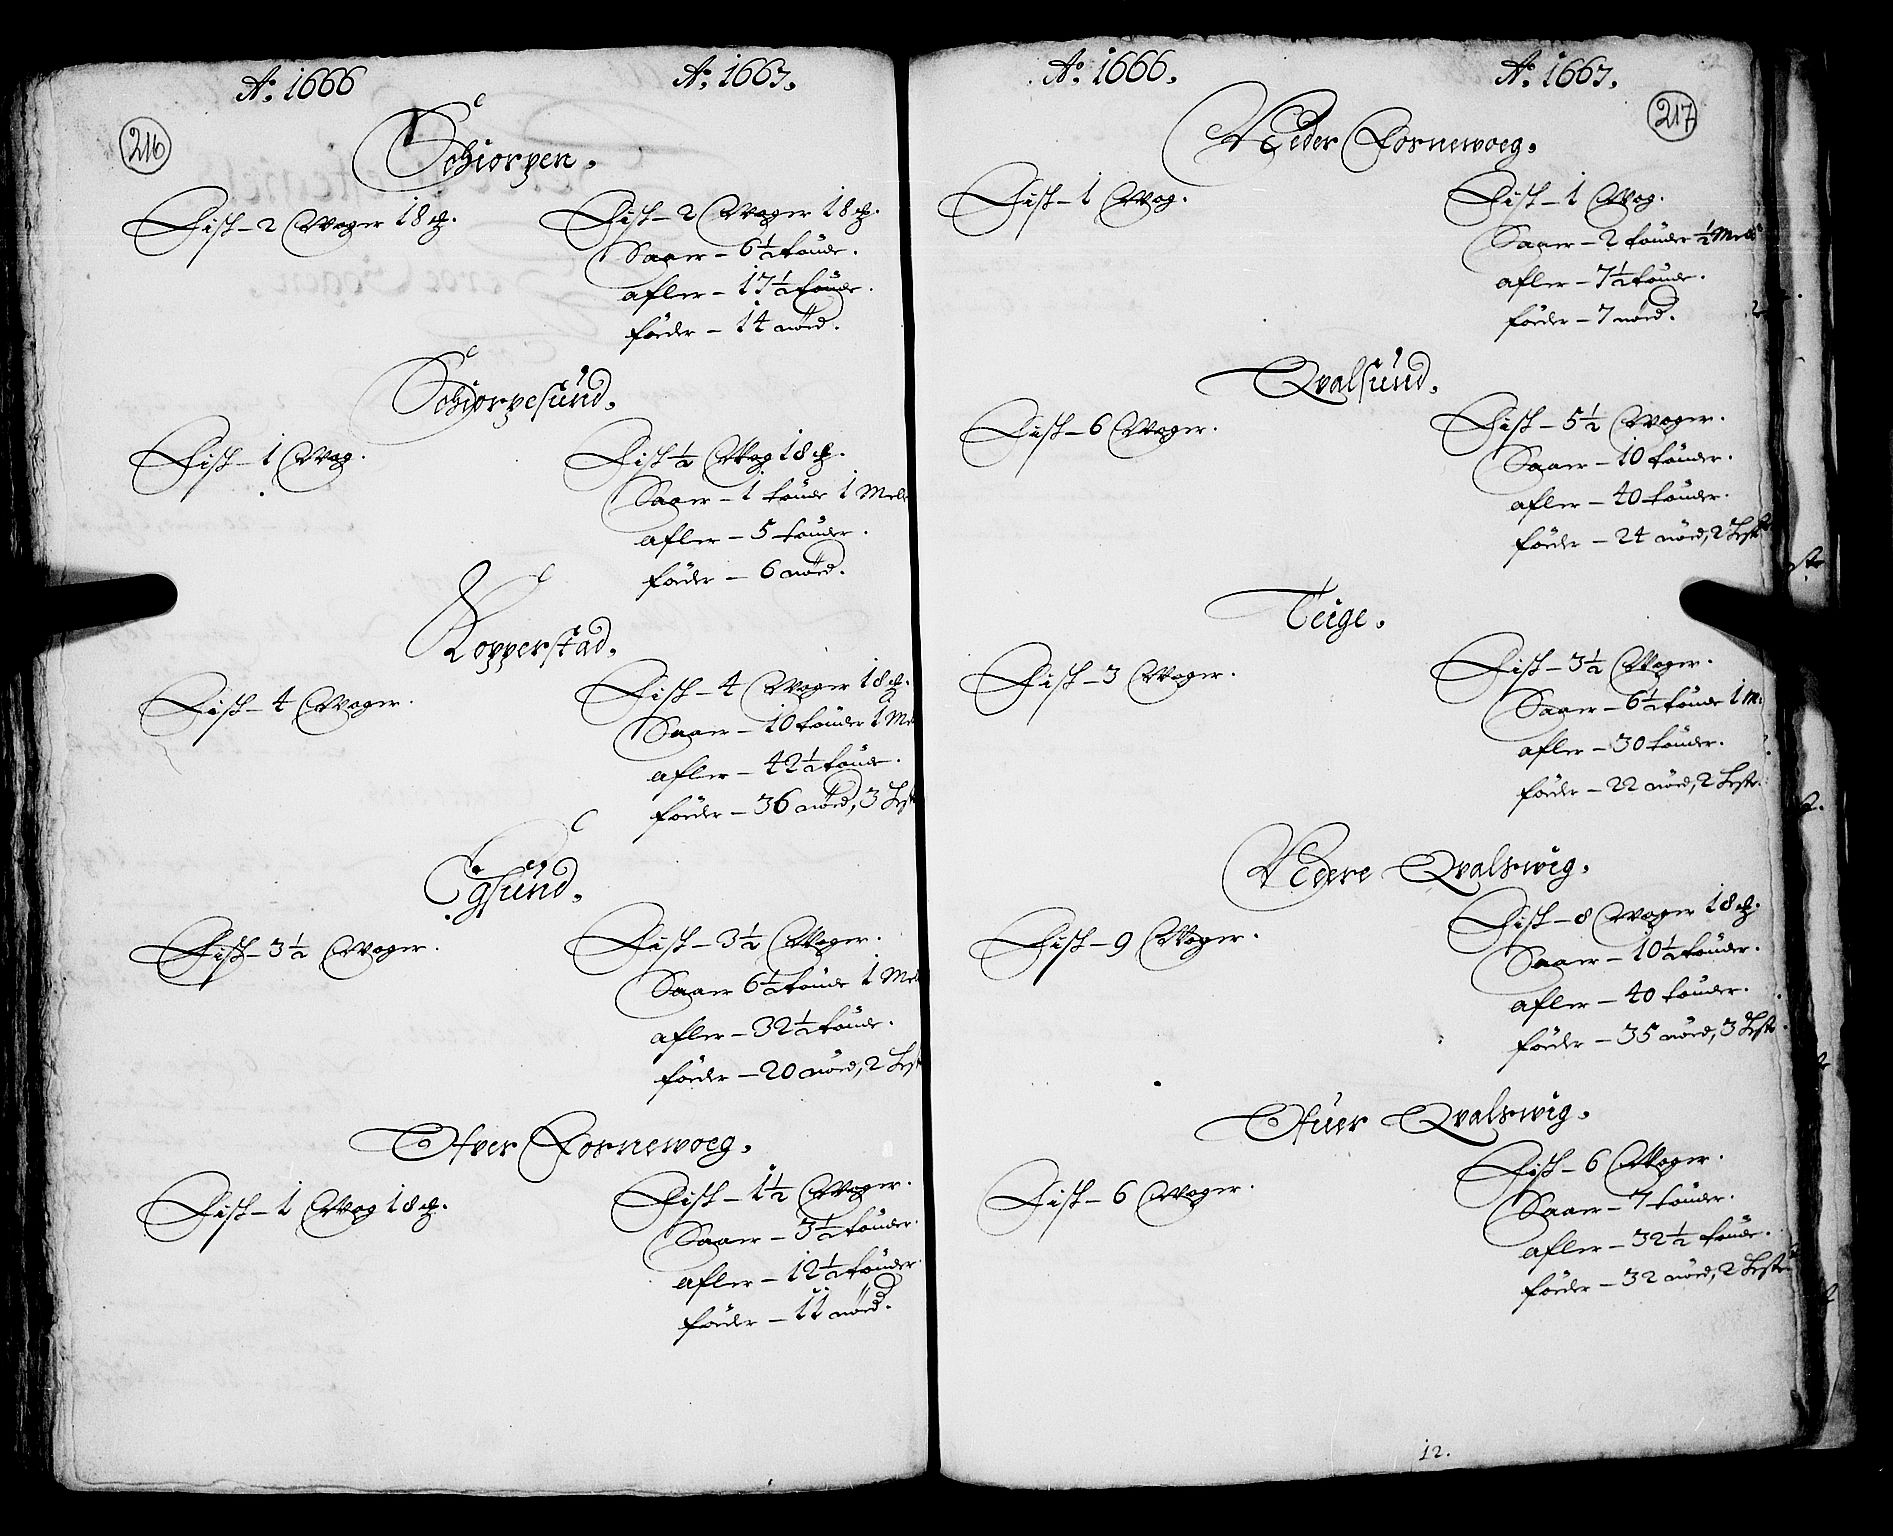 Aº. 1666 Aº. 1667.
216
Schiorpen.
Fisk – 2 Woger 18 ℔. Fisk – 2 Woger 18 ℔.
Saaer – 6½ tønde.
afler – 17½ tønde.
føeder – 14 nöed.
Schiorpesünd.
Fisk – 1 Wog. Fisk ½ Wog 18 ℔.
Saaer – 1 tønde 1 Mele
afler – 5 tønder.
føder – 6 nöed.
Kopperstad.
Fisk – 4 Woger. Fisk – 4 Woger 18 ℔.
Saaer – 10 tønder 1 Mel
afler – 42½ tønde.
føeder – 36 nöed, 3 Hest
Egsünd.
Fisk – 3½ Woger. Fisk – 3½ Woger.
Saaer 6½ tønde 1 Mel
afler – 32½ tønde.
føeder – 20 nöed, 2 Hest
Ofver Fornewoeg.
Fisk – 1 Wog 18 ℔. Fisk – 1½ Woger.
Saaer – 3½ tønder.
afler – 12½ tønder
føeder – 11 nöed.
Aº. 1666. Aº. 1667.
217
Neder Fornewoeg.
Fisk – 1 Wog. Fisk – 1 Wog.
Saaer – 2 tønder ½ Mele
afler – 7½ tønder.
føeder – 7 nöed.
Qvalsünd.
Fisk – 6 Woger. Fisk – 5½ Woger.
Saaer – 10 tønder.
afler – 40 tønder.
føeder – 24 nöed, 2 Hest
Teige.
Fisk – 3 Woger. Fisk – 3½ Woger.
Saaer – 6½ tønde 1 M.
afler – 30 tønder.
føeder – 22 nöed, 2 Heste.
Nedere Qvalswig.
Fisk – 9 Woger. Fisk – 8 Woger 18 ℔.
Saaer – 10½ tønder.
afler – 40 tønder.
føeder – 35 nöed, 3 Heste.
Ofuer Qvalswig.
Fisk – 6 Woger. Fisk – 6 Woger.
Saaer – 7 tønder.
afler – 32½ tønde.
føeder – 32 nöed, 2 Heste.
12.